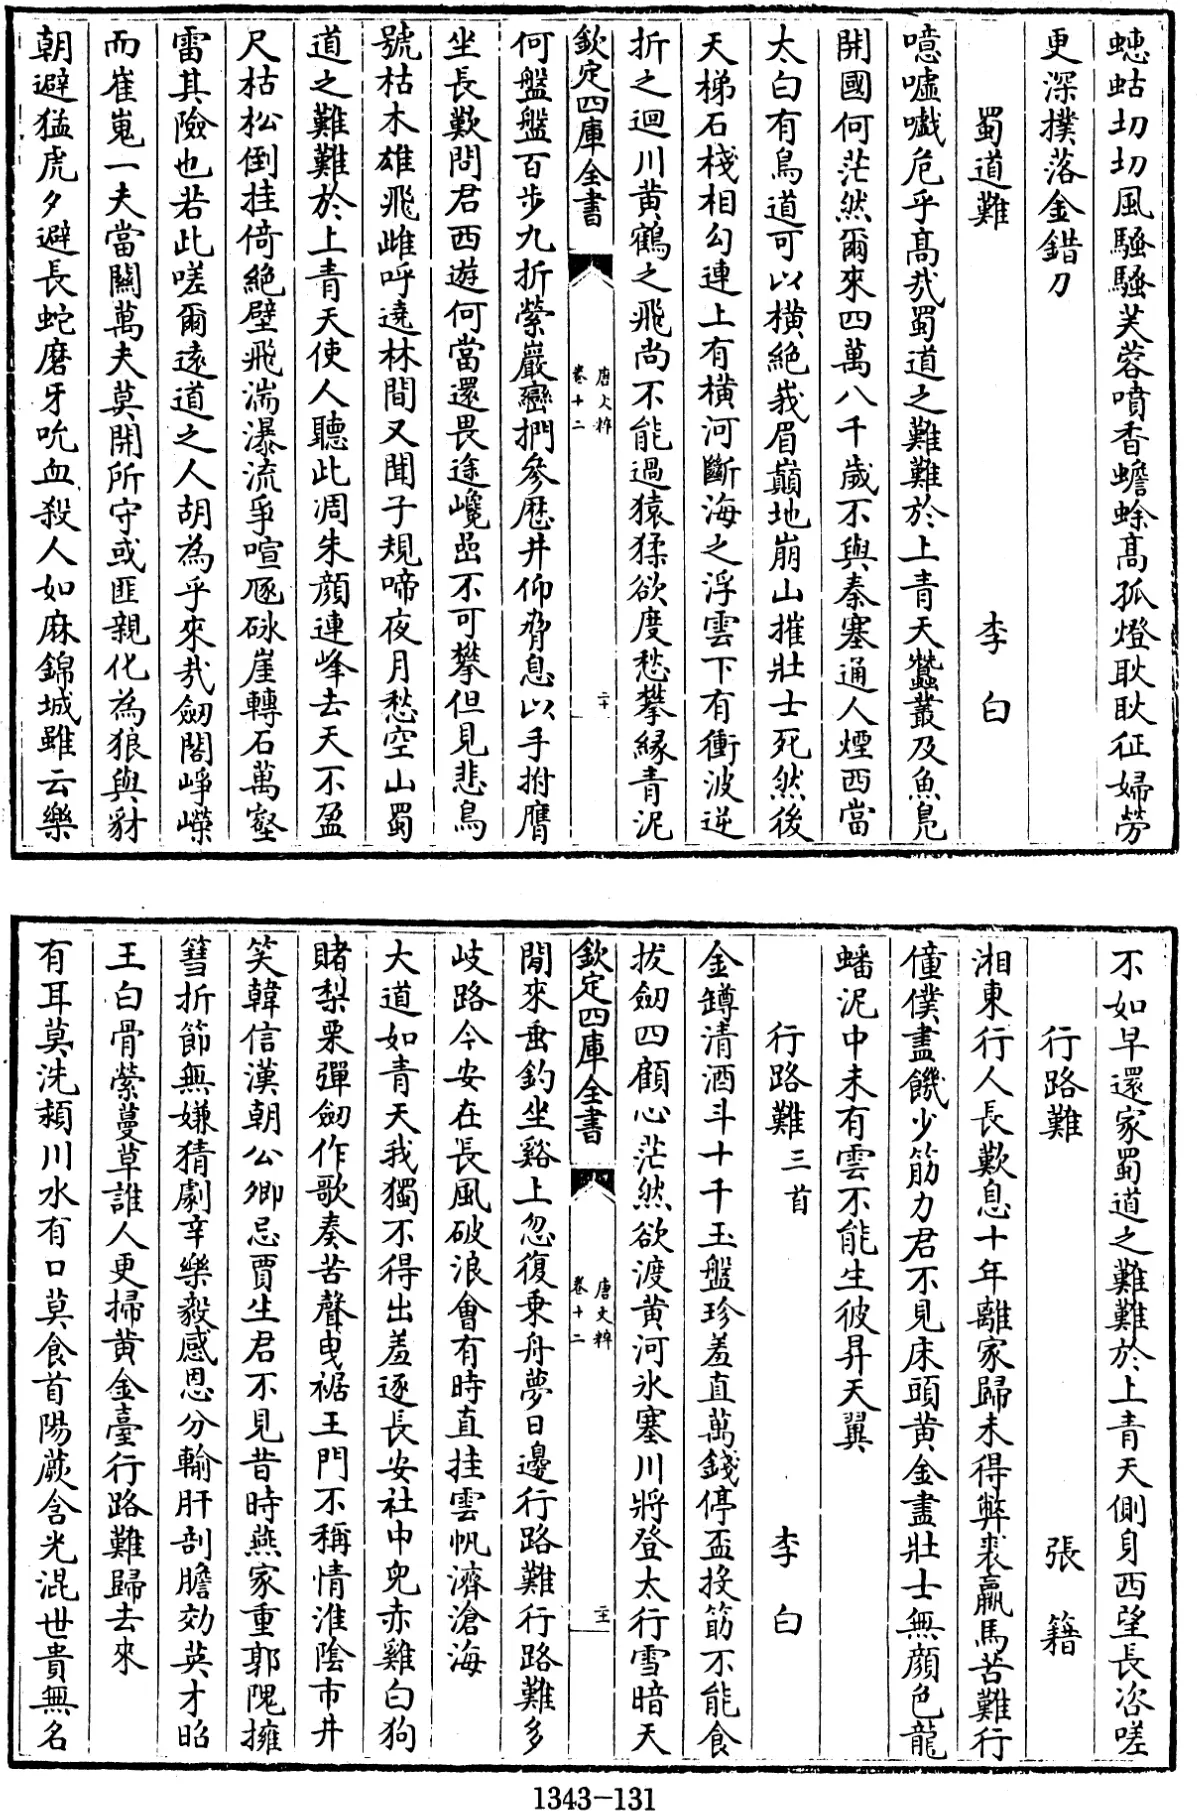 蟪蛄切切風騷騷芙蓉噴香蟾蜍高孤燈耿耿征婦勞
更深撲落金錯刀
蜀道難 李白
噫嘘嚱危乎髙㢤蜀道之難難於上青天蠶叢及魚鳧
開國何茫然爾來四萬八千歲不與秦塞通人煙西當
太白有鳥道可以橫絶峩眉巔地崩山摧壯士死然後
天梯石棧相勾連上有橫河斷海之浮雲下有衝波逆
折之迴川黄鶴之飛尚不能過猿猱欲度愁攀縁青泥
欽定四庫全書 唐文粹 卷十二 二十
何盤盤百步九折縈巖巒捫參歴井仰脅息以手拊膺
坐長歎問君西遊何當還畏途巉喦不可攀但見悲鳥
號枯木雄飛雌呼遶林間又聞子規啼夜月愁空山蜀
道之難難於上青天使人聽此凋朱顔連峰去天不盈
尺枯松倒挂倚絶壁飛湍瀑流爭喧豗砅崖轉石萬壑
雷其險也若此嗟爾逺道之人胡為乎來㢤劒閣崢嶸
而崔嵬一夫當關萬夫莫開所守或匪親化為狼與豺
朝避猛虎夕避長蛇磨牙吮血殺人如麻錦城雖云樂
不如早還家蜀道之難難於上青天側身西望長咨嗟
行路難 張籍
湘東行人長歎息十年離家歸未得弊裘羸馬苦難行
僮僕盡饑少筋力君不見床頭黄金盡壯士無顔色龍
蟠泥中未有雲不能生彼昇天翼
行路難三首 李白
金罇清酒斗十千玉盤珍羞直萬錢停盃投筯不能食
拔劒四顧心茫然欲渡黄河氷塞川將登太行雪暗天
欽定四庫全書 唐文粹 卷十二 二十一
閒來垂釣坐谿上忽復乗舟夢日邊行路難行路難多
岐路今安在長風破浪會有時直挂雲帆濟滄海
大道如青天我獨不得出羞逐長安社中兒赤雞白狗
賭梨栗彈劒作歌奏苦聲曵裾王門不稱情淮陰市井
笑韓信漢朝公卿忌賈生君不見昔時燕家重郭隗擁
篲折節無嫌猜劇辛樂毅感恩分輸肝剖膽効英才昭
王白骨縈蔓草誰人更掃黄金臺行路難歸去來
有耳莫洗潁川水有口莫食首陽蕨含光混世貴無名
1343-131